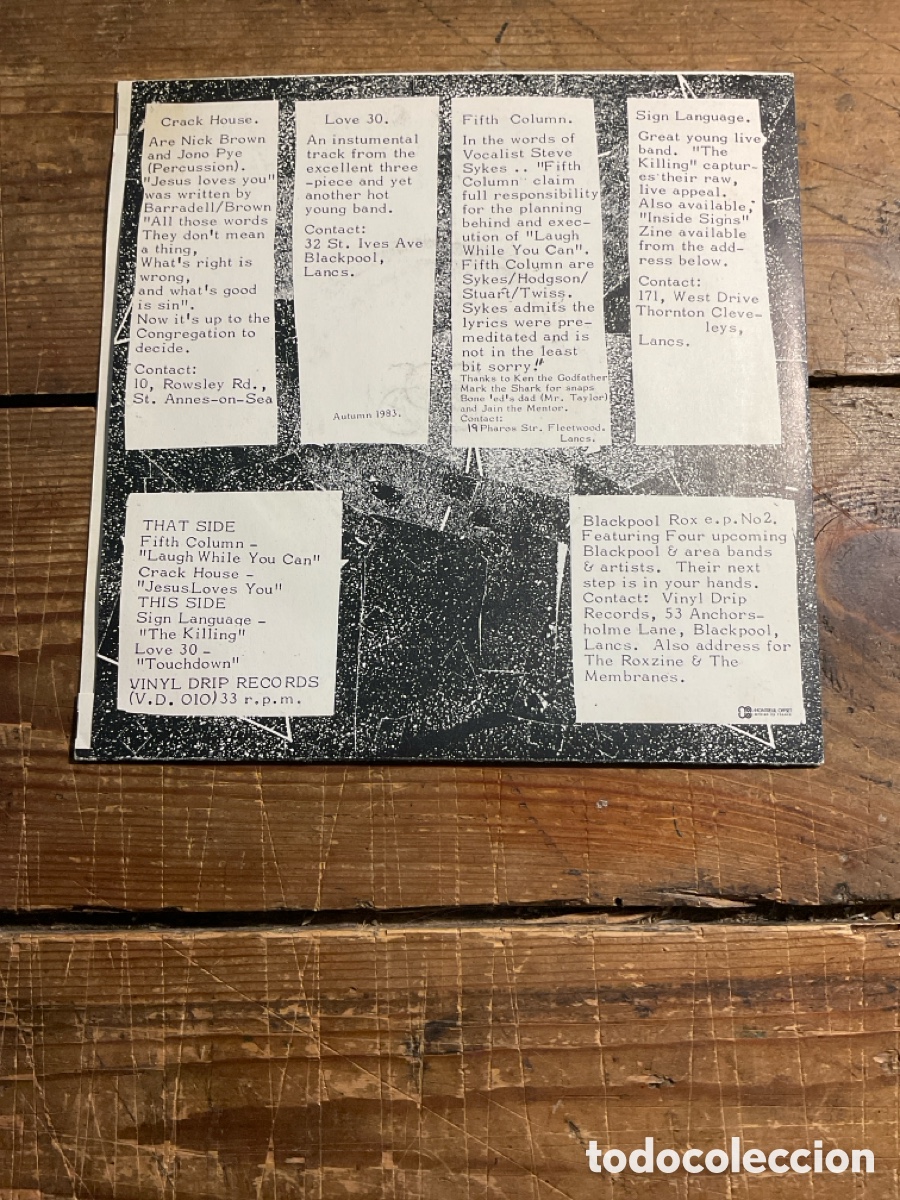 Crack House.
Are Nick Brown
and Jono Pye
(Percussion).
"Jesus loves you"
was written by
Barradell/Brown
"All those words
They don't mean
a thing,
What's right is
wrong,
and what's good
is sin".
Now it's up to the
Congregation to
decide.
Contact:
10, Rowsley Rd.,
St. Annes-on-Sea
Love 30.
An instumental
track from the
excellent three
-piece and yet
another hot
young band.
Contact:
32 St. Ives Ave
Blackpool,
Lancs.
Autumn 1983.
Fifth Column.
In the words of
Vocalist Steve
Sykes .. "Fifth
Column" claim
full responsibility
for the planning
behind and exec-
ution of "Laugh
While You Can".
Fifth Column are
Sykes/Hodgson/
Stuart/Twiss.
Sykes admits the
lyrics were pre-
meditated and is
not in the least
bit sorry!"
Thanks to Ken the Godfather
Mark the Shark for snaps
Bone 'ed's dad (Mr. Taylor)
and Jain the Mentor.
Contact:
19 Pharos Str. Fleetwood.
Lancs.
Sign Language.
Great young live
band. "The
Killing" captur-
es their raw,
live appeal.
Also available,
"Inside Signs"
Zine available
from the add-
ress below.
Contact:
171, West Drive
Thornton Cleve-
leys,
Lancs.
THAT SIDE
Fifth Column -
"Laugh While You Can"
Crack House -
"Jesus Loves You"
THIS SIDE
Sign Language -
"The Killing"
Love 30 -
"Touchdown"
VINYL DRIP RECORDS
(V.D. 010) 33 r.p.m.
Blackpool Rox e.p. No2.
Featuring Four upcoming
Blackpool & area bands
& artists. Their next
step is in your hands.
Contact: Vinyl Drip
Records, 53 Anchors-
holme Lane, Blackpool,
Lancs. Also address for
The Roxzine & The
Membranes.
todocoleccion